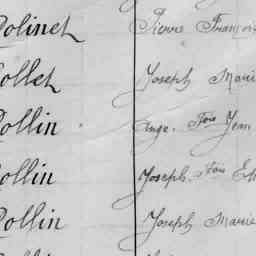 Dolinet Pierre François
Collet Joseph Marie
Collin Ange. Fois Jean
Collin Joseph. Fois
Collin Joseph Marie